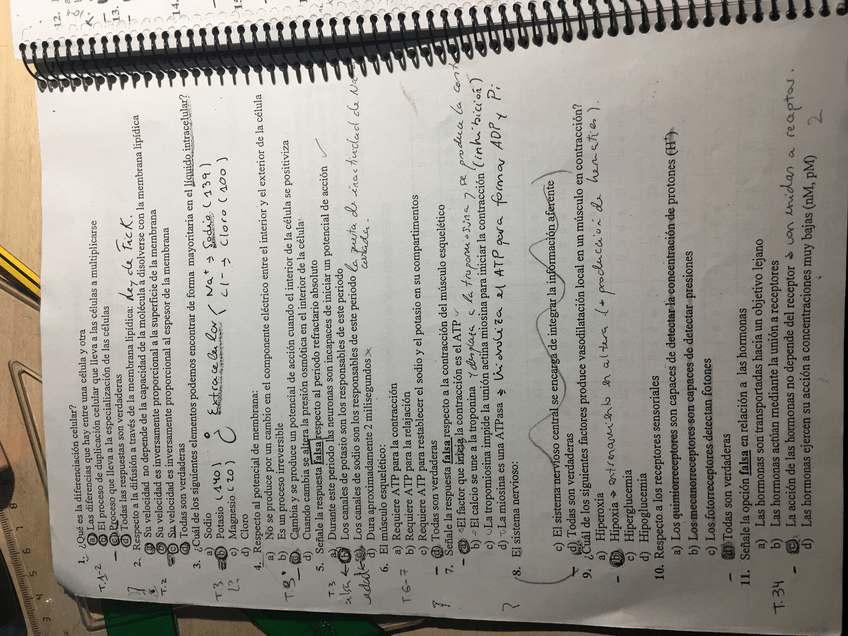 12.
13.
14.
15
1. ¿Qué es la diferenciación celular?
a) Las diferencias que hay entre una célula y otra
b) El proceso de duplicación celular que lleva a las células a multiplicarse
c) Proceso que lleva a la especialización de las células
d) Todas las respuestas son verdaderas
T.1-2
2. Respecto a la difusión a través de la membrana lipídica: Ley de Fick.
a) Su velocidad no depende de la capacidad de la molécula a disolverse con la membrana lipídica
b) Su velocidad es inversamente proporcional a la superficie de la membrana
c) Su velocidad es inversamente proporcional al espesor de la membrana
d) Todas son verdaderas
T.2
3. ¿Cuál de los siguientes elementos podemos encontrar de forma mayoritaria en el líquido intracelular?
a) Sodio
b) Potasio (140)
c) Magnesio (20)
d) Cloro
T.3
Extracelular { Na+ → Sodio (139)
Cl- → Cloro (100)
4. Respecto al potencial de membrana:
a) No se produce por un cambio en el componente eléctrico entre el interior y el exterior de la célula
b) Es un proceso irreversible
c) Cambia y se produce un potencial de acción cuando el interior de la célula se positiviza
d) Cuando cambia se altera la presión osmótica en el interior de la célula
5. Señale la respuesta falsa respecto al periodo refractario absoluto
a) Durante este periodo las neuronas son incapaces de iniciar un potencial de acción ✓
b) Los canales de potasio son los responsables de este periodo
c) Los canales de sodio son los responsables de este periodo la puerta de inactividad de Na
cerrada.
d) Dura aproximadamente 2 milisegundos
T.3
6. El músculo esquelético:
a) Requiere ATP para la contracción
b) Requiere ATP para la relajación
c) Requiere ATP para restablecer el sodio y el potasio en su compartimentos
d) Todas son verdaderas
T6-7
7. Señale la respuesta falsa respecto a la contracción del músculo esquelético
a) El factor que inicia la contracción es el ATP
b) El calcio se une a la troponina y desplaza a la tropomiosina y se produce la cont
c) La tropomiosina impide la unión actina miosina para iniciar la contracción (inhibición)
d) La miosina es una ATPasa → hidroliza el ATP para formar ADP y Pi
?
8. El sistema nervioso:
c) El sistema nervioso central se encarga de integrar la información aferente
d) Todas son verdaderas
?
9. ¿Cuál de los siguientes factores produce vasodilatación local en un músculo en contracción?
a) Hiperoxia
b) Hipoxia → entrenamiento en altura (+ producción de hematíes).
c) Hiperglucemia
d) Hipoglucemia
10. Respecto a los receptores sensoriales
a) Los quimiorreceptores son capaces de detectar la concentración de protones (H+)
b) Los mecanorreceptores son capaces de detectar presiones
c) Los fotorreceptores detectan fotones
d) Todas son verdaderas
11. Señale la opción falsa en relación a las hormonas
a) Las hormonas son transportadas hacia un objetivo lejano
b) Las hormonas actúan mediante la unión a receptores
c) La acción de las hormonas no depende del receptor → van unidas a receptor.
d) Las hormonas ejercen su acción a concentraciones muy bajas (nM, pM)
T.34
2